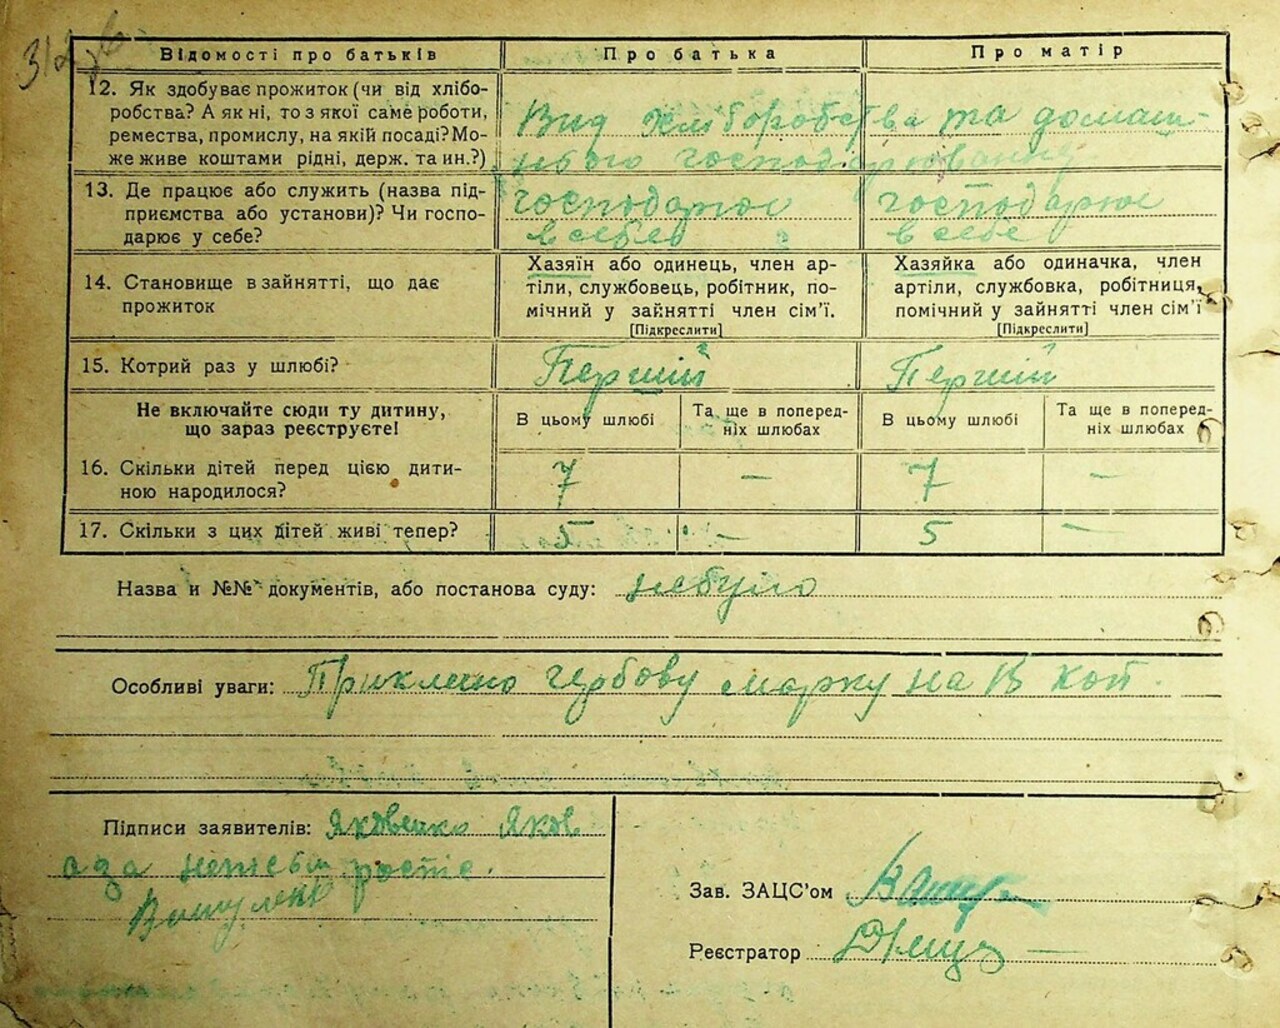 Відомості про батьків Про батька Про матір
12. Як здобуває прожиток (чи від хлібо-
робства? А як ні, то з якої саме роботи,
ремества, промислу, на якій посаді? Мо-
же живе коштами рідні, держ. та ин.?)
Вид хліборобства та домаш-
нього господарювання
13. Де працює або служить (назва під-
приємства або установи)? Чи госпо-
дарює у себе?
господарює господарює
в себе в себе
14. Становище в зайнятті, що дає
прожиток
Хазяїн або одинець, член ар-
тіли, службовець, робітник, по-
мічний у зайнятті член сім'ї.
[Підкреслити]
Хазяйка або одиначка, член
артіли, службовка, робітниця,
помічний у зайнятті член сім'ї
[Підкреслити]
15. Котрий раз у шлюбі? Перший Перший
Не включайте сюди ту дитину,
що зараз реєструєте!
В цьому шлюбі Та ще в поперед-
ніх шлюбах
В цьому шлюбі Та ще в поперед-
ніх шлюбах
16. Скільки дітей перед цією дити-
ною народилося?
7 — 7 —
17. Скільки з цих дітей живі тепер? 5 — 5 —
Назва и №№ документів, або постанова суду: небуло
Особливі уваги: Приклеено гербову марку на коп.
Підписи заявителів: Яковенко Яков
а за
Зав. ЗАЦС'ом
Реєстратор